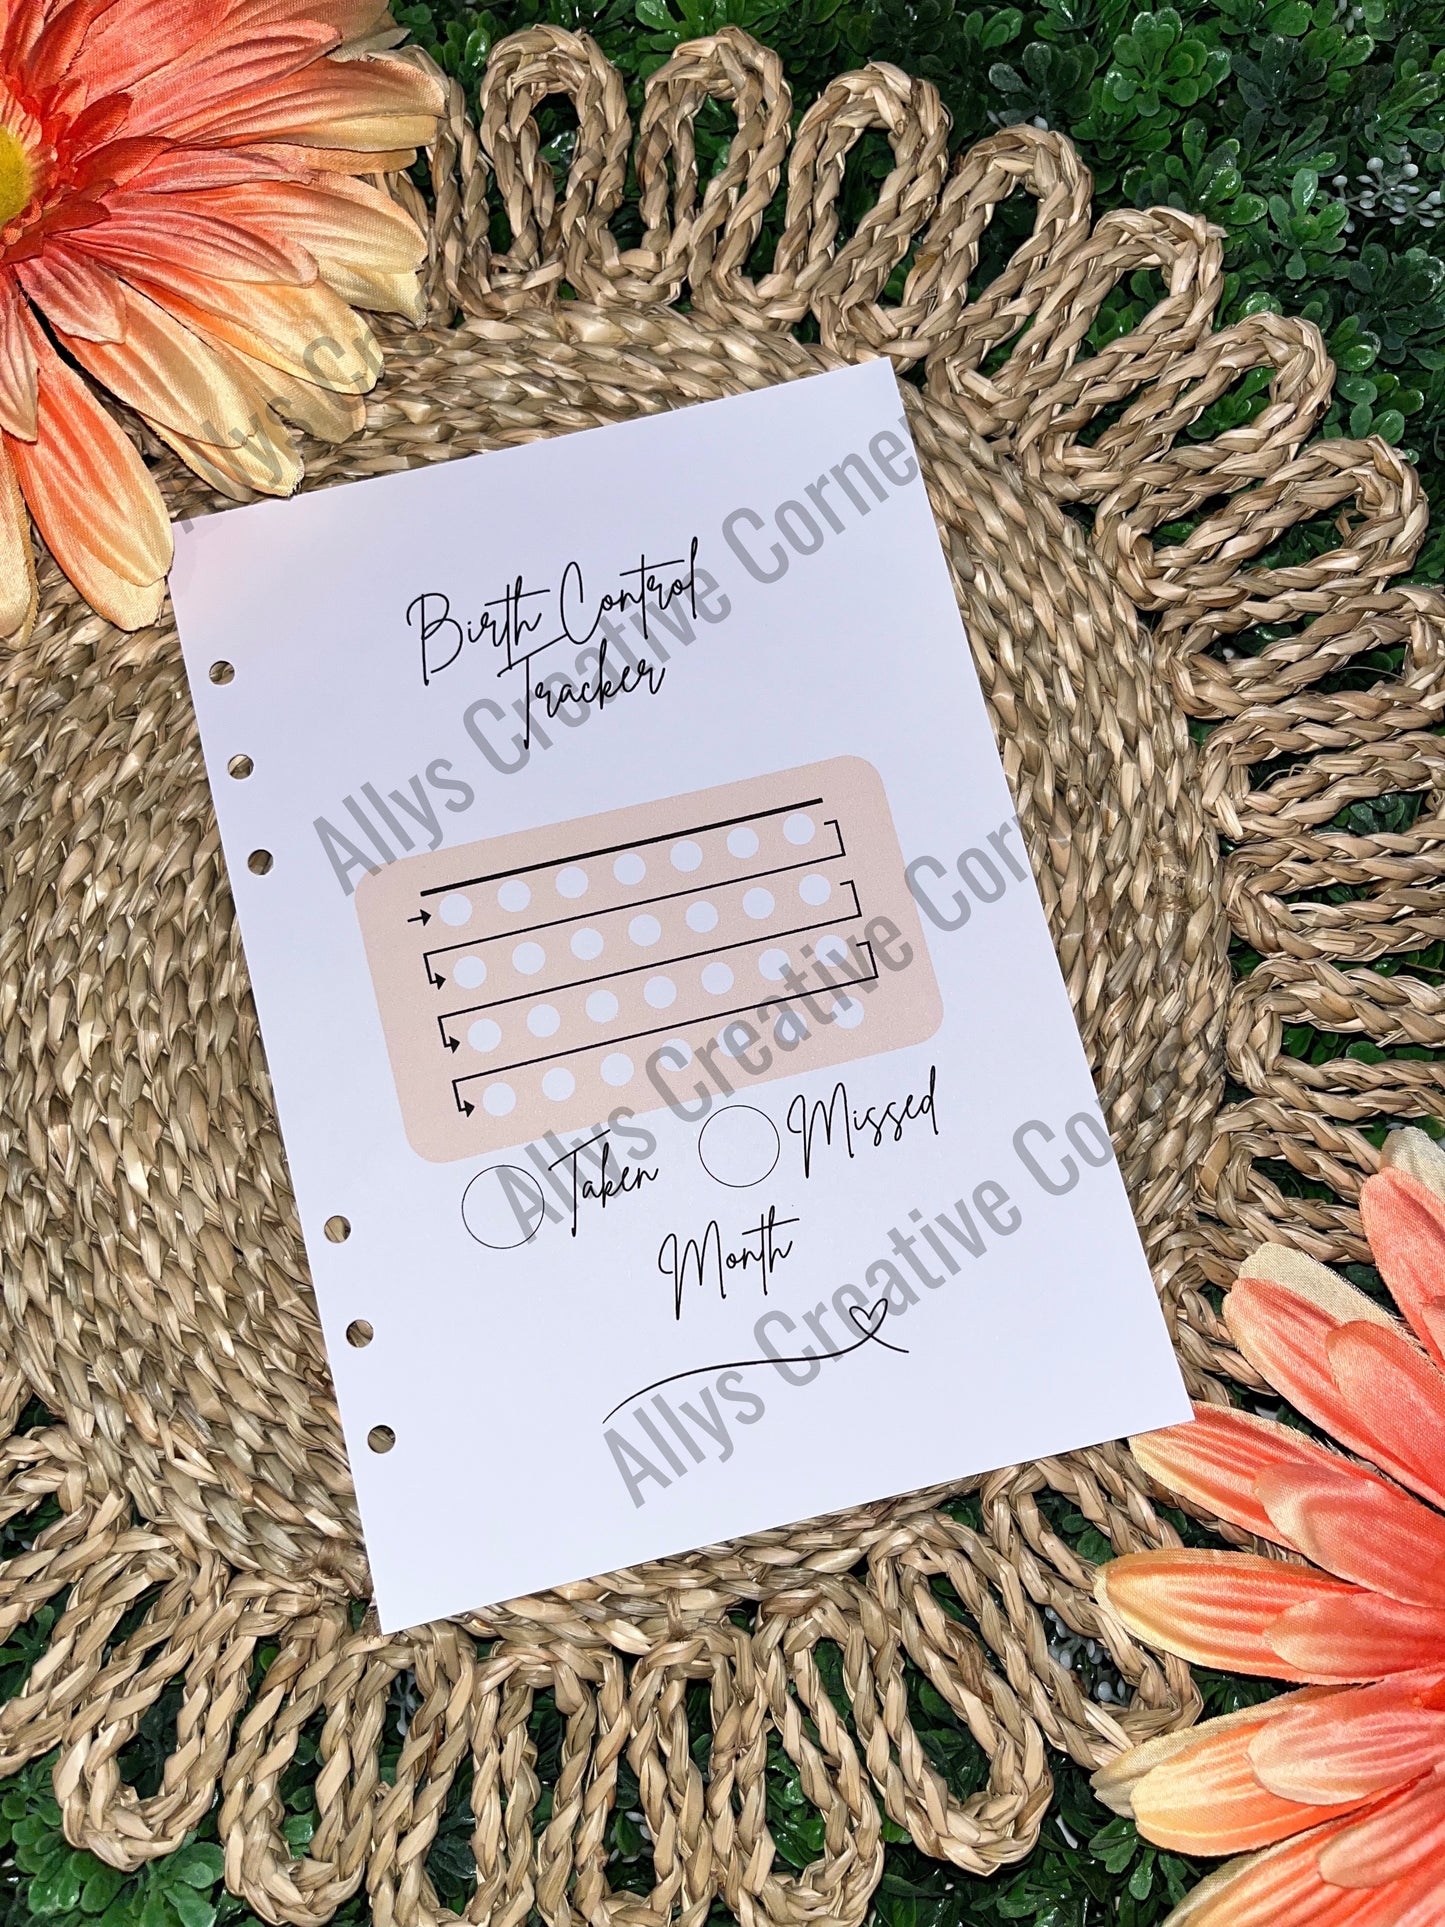 Allys Creative Corner
Birth Control
Tracker
Allys Creative Corner
Taken
Missed
Month
Allys Creative Corner